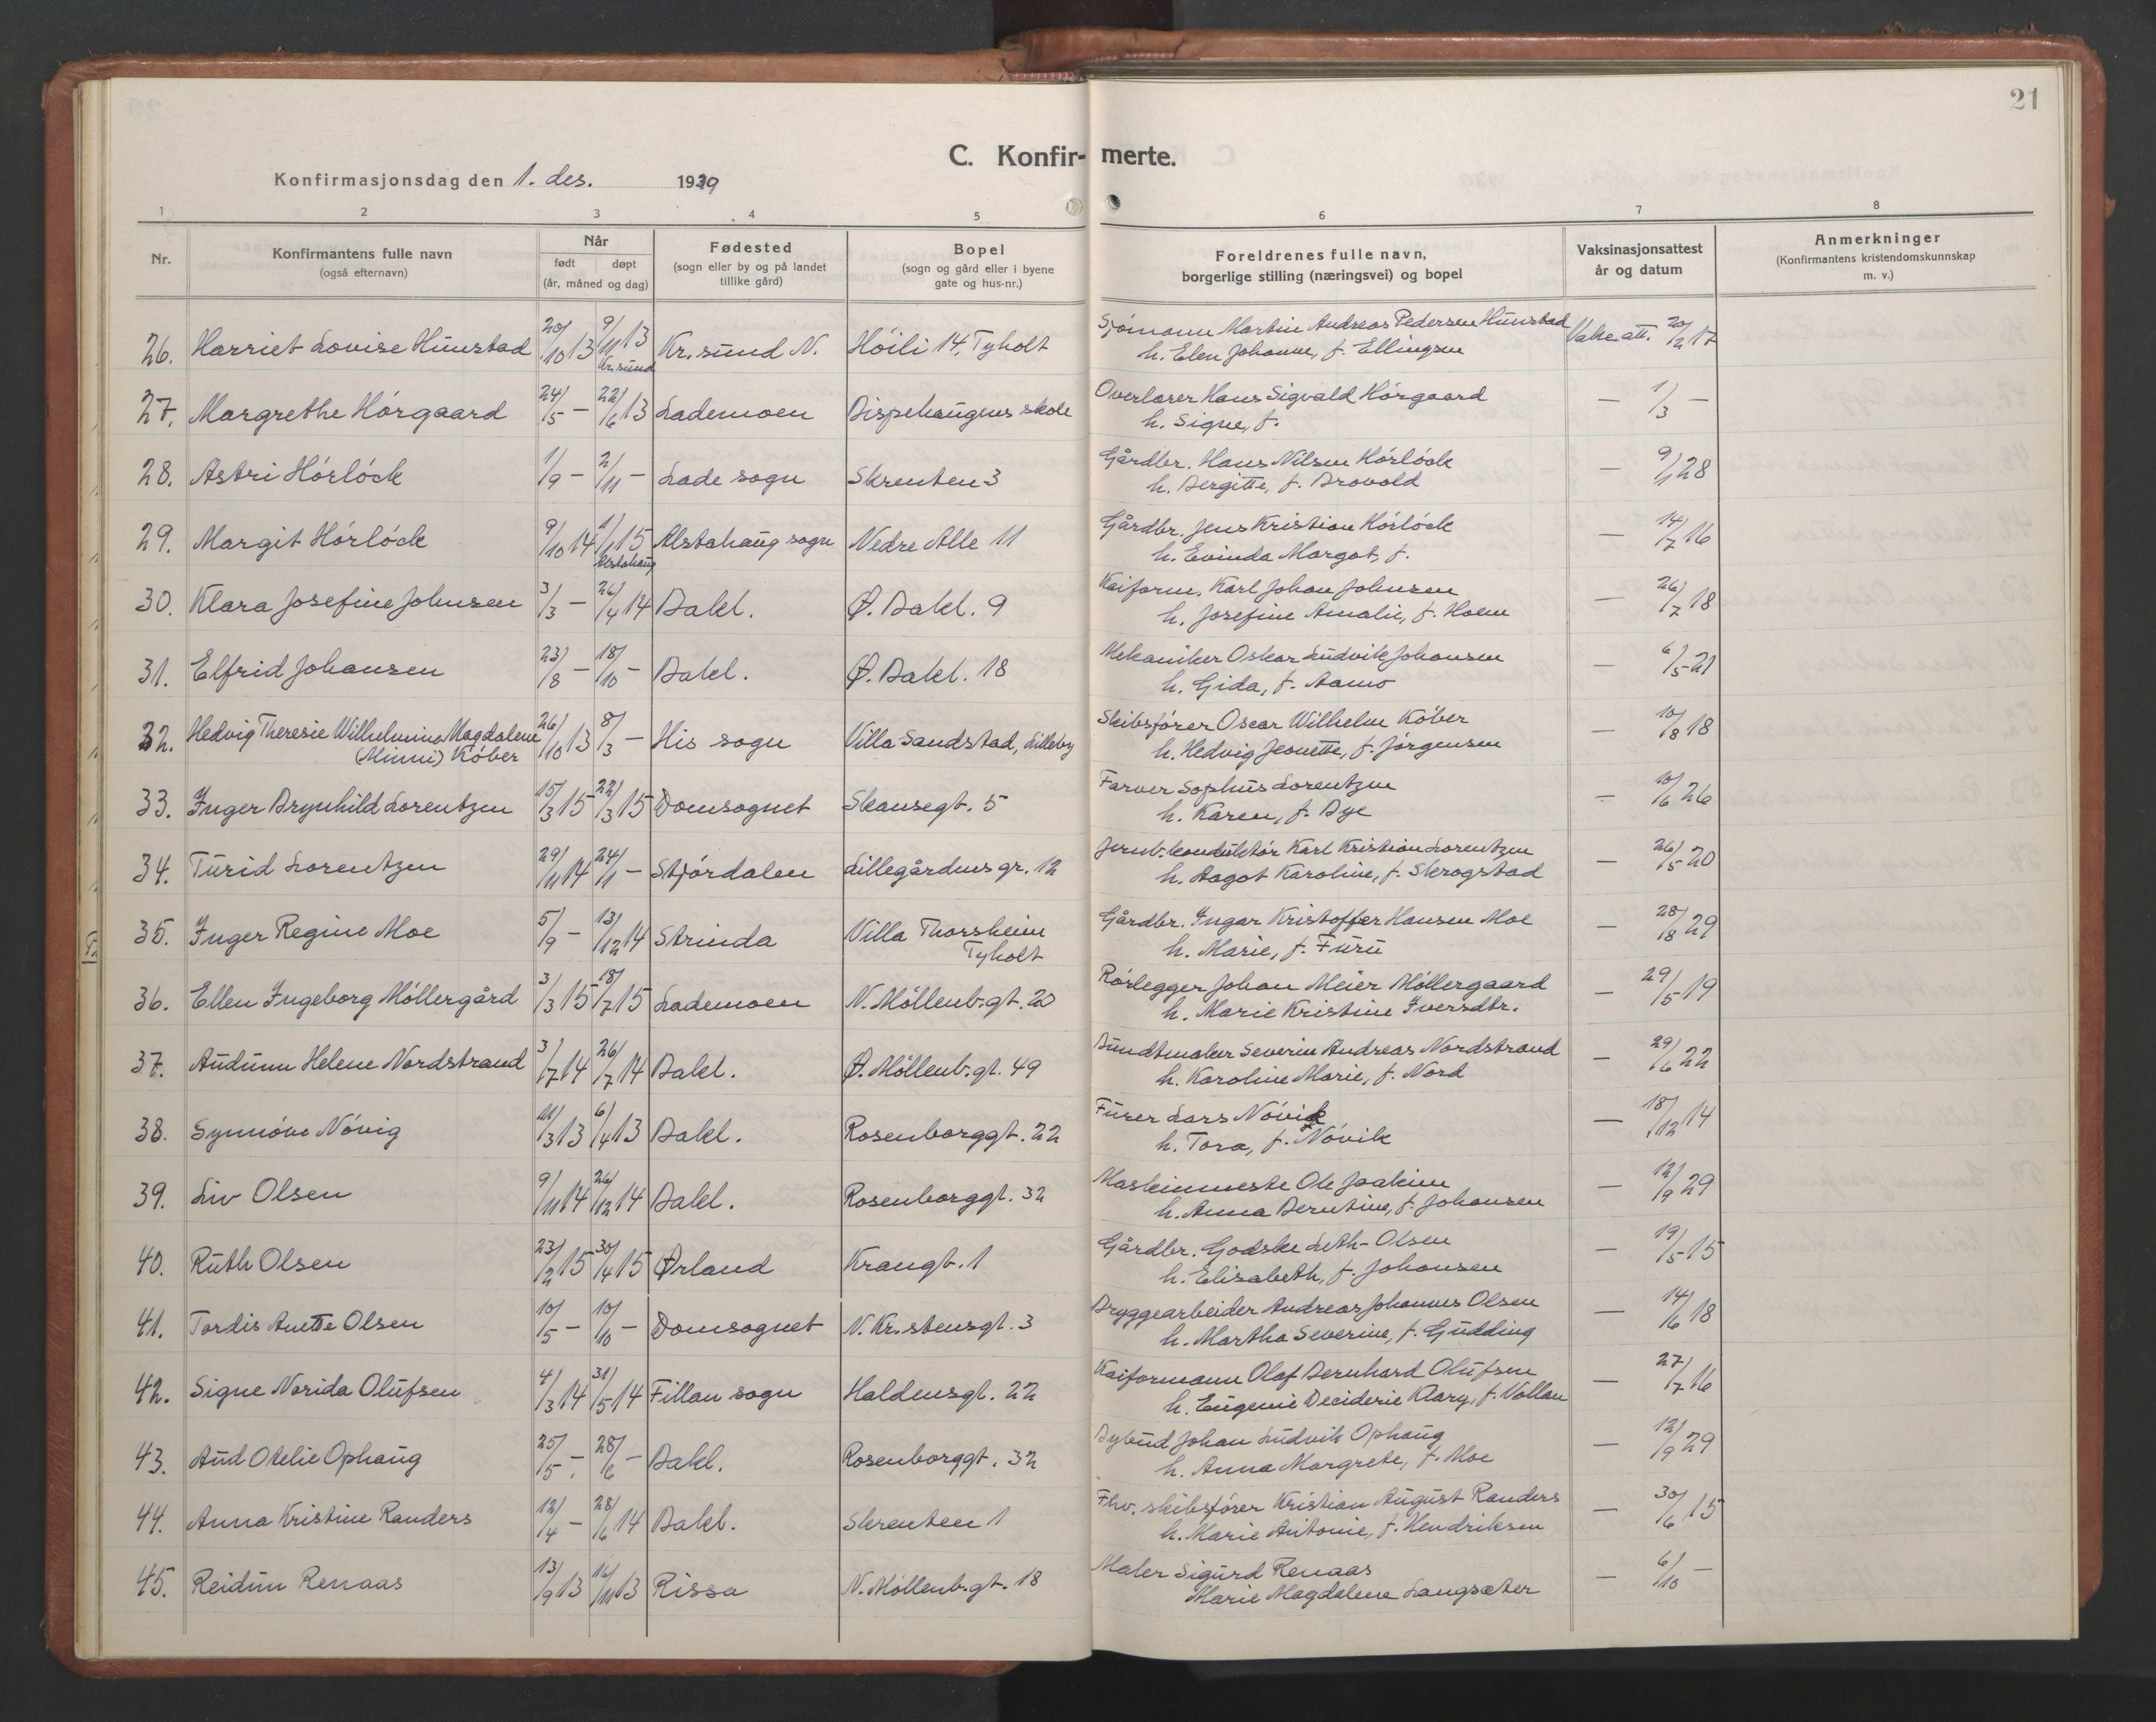 21
C. Konfir- merte.
Konfirmasjonsdag den 1. des. 1929
1 2 3 4 5 6 7 8
Nr. Konfirmantens fulle navn (også efternavn) Når født døpt (år, måned og dag) Fødested (sogn eller by og på landet tillike gård) Bopel (sogn og gård eller i byene gate og hus-nr.) Foreldrenes fulle navn, borgerlige stilling (næringsvei) og bopel Vaksinasjonsattest år og datum Anmerkninger (Konfirmantens kristendomskunnskap m. v.)
26. Harriet Lovise Hunstad 20/10 13 9/11 13 Kr.sund Kr.sund N. Høili 14, Tyholt Sjømann Martin Andreas Pedersen Hunstad Vaks. att. 20/2 17
h. Elen Johanne, f. Ellingsen
27. Margrethe Hørgaard 24/5 – 22/6 13 Lademoen Bispehaugens skole Overlærer Hans Sigvald Hørgaard – 1/3 –
h. Signe, f.
28. Astri Hørløck 1/9 – 2/11 – Lade sogn Skrenten 3 Gårdbr. Hans Nilsen Hørløck – 9/1 28
h. Bergitte, f. Brovold
29. Margit Hørløck 9/10 14 1/1 15 Alstahaug Alstahaug sogn Nedre Alle 11 Gårdbr. Jens Kristian Hørløck – 14/7 16
h. Evinda Margot, f.
30. Klara Josefine Johnsen 3/3 – 26/4 14 Bakl. Ø. Bakl. 9 Kaiform. Karl Johan Johnsen – 26/7 18
h. Josefine Amalie, f. Holm
31. Elfrid Johansen 23/8 – 18/10 – Bakl. Ø. Bakl. 18 Mekaniker Oskar Ludvik Johansen – 6/5 21
h. Gida, f. Aamo
32. Hedvig Theresie Wilhelmine Magdalene 26/10 13 8/3 – His sogn Villa Sandstad, Lilleby Skibsfører Oscar Wilhelm Køber – 10/8 18
(Minni) Køber h. Hedvig Jeanette, f. Jørgensen
33. Inger Brynhild Lorentzen 15/3 15 22/3 15 Domsognet Skansegt. 5 Farver Sophus Lorentzen – 10/6 26
h. Karen, f. Bye
34. Turid Lorentzen 29/11 14 24/1 – Stjørdalen Lillegårdens gr. 12 Jernb. konduktør Karl Kristian Lorentzen – 26/5 20
h. Aagot Karoline, f. Skrogstad
35. Inger Regine Moe 5/9 – 13/12 14 Strinda Villa Thorsheim Tyholt Gårdbr. Ingar Kristoffer Hansen Moe – 28/8 29
h. Marie, f. Furu
36. Ellen Ingeborg Møllergård 3/3 15 18/7 15 Lademoen N. Møllenb.gt. 20 Rørlegger Johan Meier Møllergaard – 29/5 19
h. Marie Kristine Iversdtr.
37. Audunn Helene Nordstrand 3/7 14 26/7 14 Bakl. Ø. Møllenb.gt. 49 Bundtmaker Severin Andreas Nordstrand – 29/6 22
h. Karoline Marie, f. Nord
38. Synnøve Nøvig 11/3 13 6/4 13 Bakl. Rosenborggt. 22 Furer Lars Nøvik – 18/12 14
h. Tora, f. Nøvik
39. Liv Olsen 9/11 14 26/12 14 Bakl. Rosenborggt. 32 Maskinmeste Ole Joakim – 12/9 29
h. Anna Berntine, f. Johansen
40. Ruth Olsen 23/2 15 30/4 15 Ørland Krangt. 1 Gårdbr. Godske Leth-Olsen – 19/5 15
h. Elisabeth, f. Johansen
41. Tordis Anette Olsen 10/5 – 10/10 – Domsognet N. Kr.stensgt. 3 Bryggearbeider Andreas Johannes Olsen – 14/6 18
h. Martha Severine, f. Gudding
42. Signe Norida Olufsen 4/3 14 31/5 14 Fillan sogn Haldensgt. 22 Kaiformann Olaf Bernhard Olufsen – 27/7 16
h. Eugenie Deciderie Klary, f. Vollan
43. Aud Otelie Ophaug 25/5 – 28/6 – Bakl. Rosenborggt. 32 Bybud Johan Ludvik Ophaug – 12/9 29
h. Anna Margrete, f. Moe
44. Anna Kristine Randers 12/4 – 28/6 14 Bakl. Skrenten 1 Fhv. skibsfører Kristian August Randers – 30/6 15
h. Marie Antonie, f. Hendriksen
45. Reidun Renaas 13/9 13 16/11 13 Rissa N. Møllenb.gt. 18 Maler Sigurd Renaas – 6/10 –
Marie Magdalene Langsæter